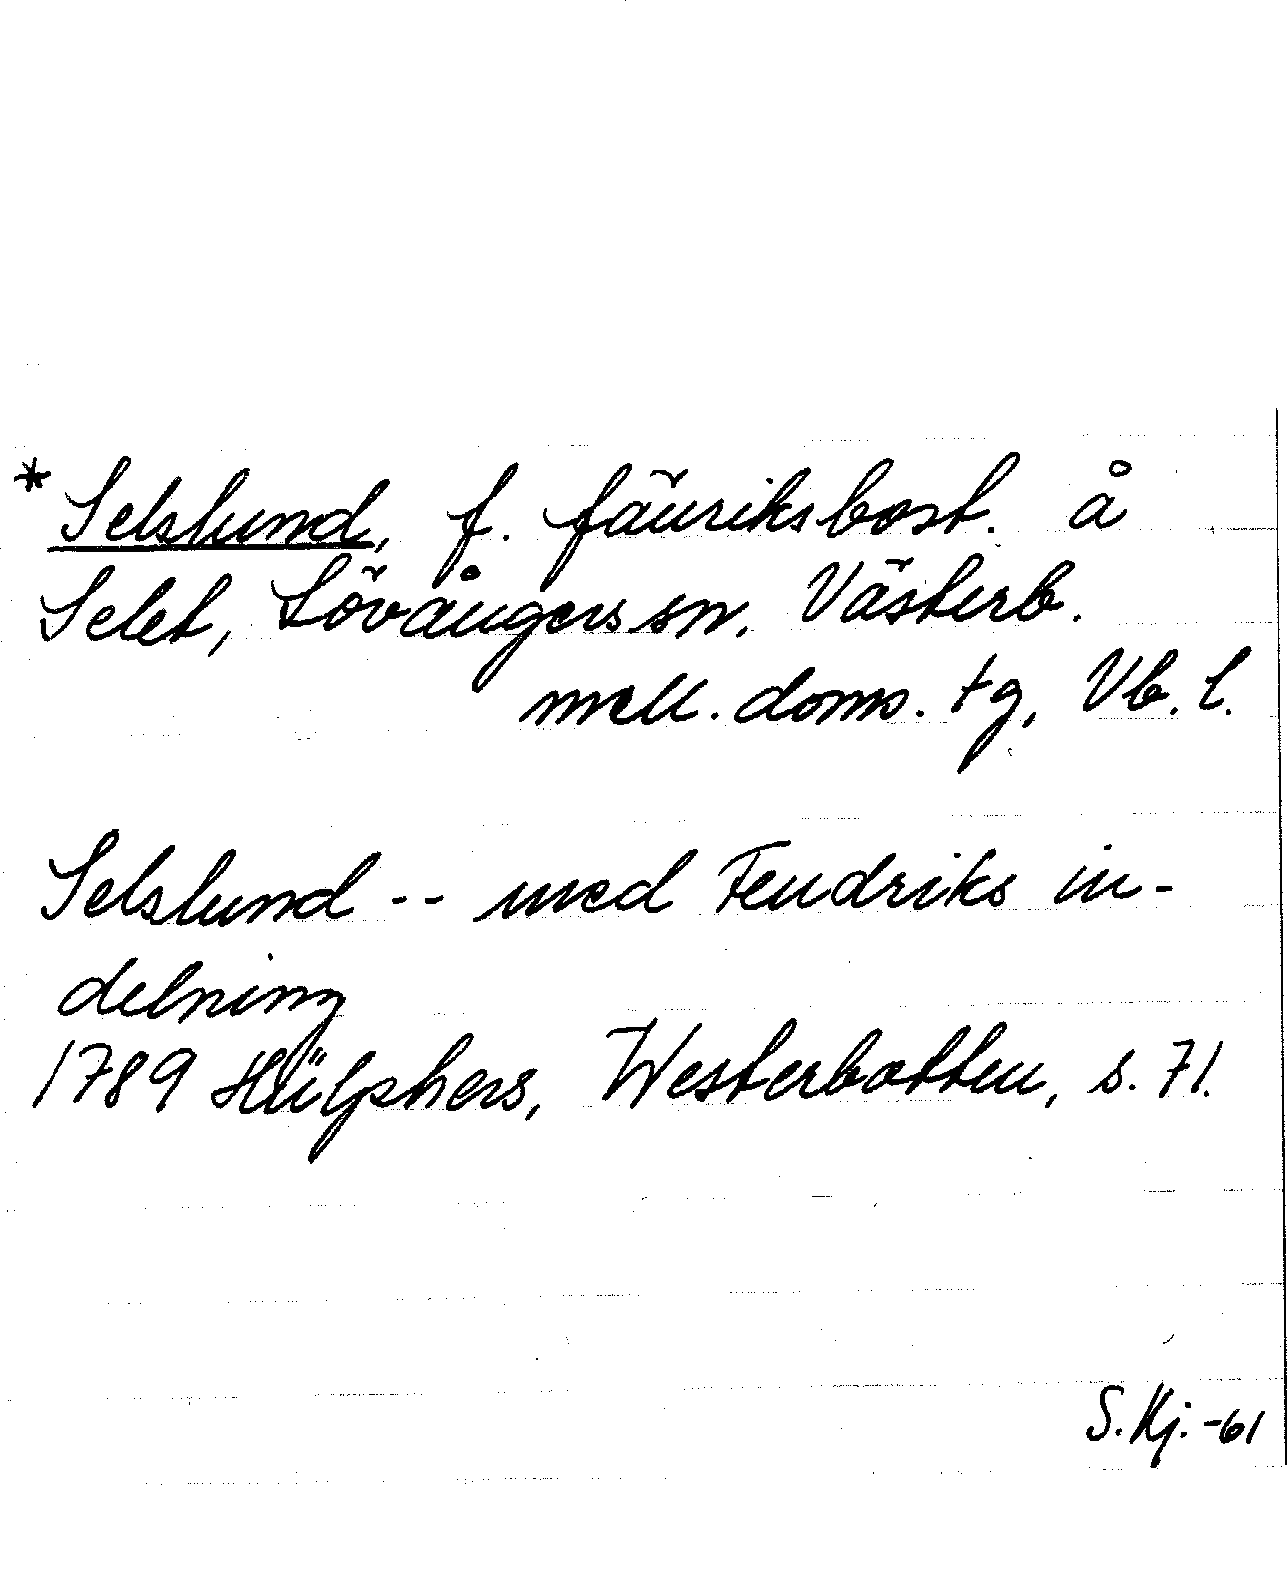 * Selslund, f. fänriksbost. å
Selet, Lövångers sn. Västerb.
mell. doms. tg, Vb. l.
Selslund -- med Fendriks in-
delning
1789 Hülphers, Westerbotten, s. 71.
S. Kj. -61